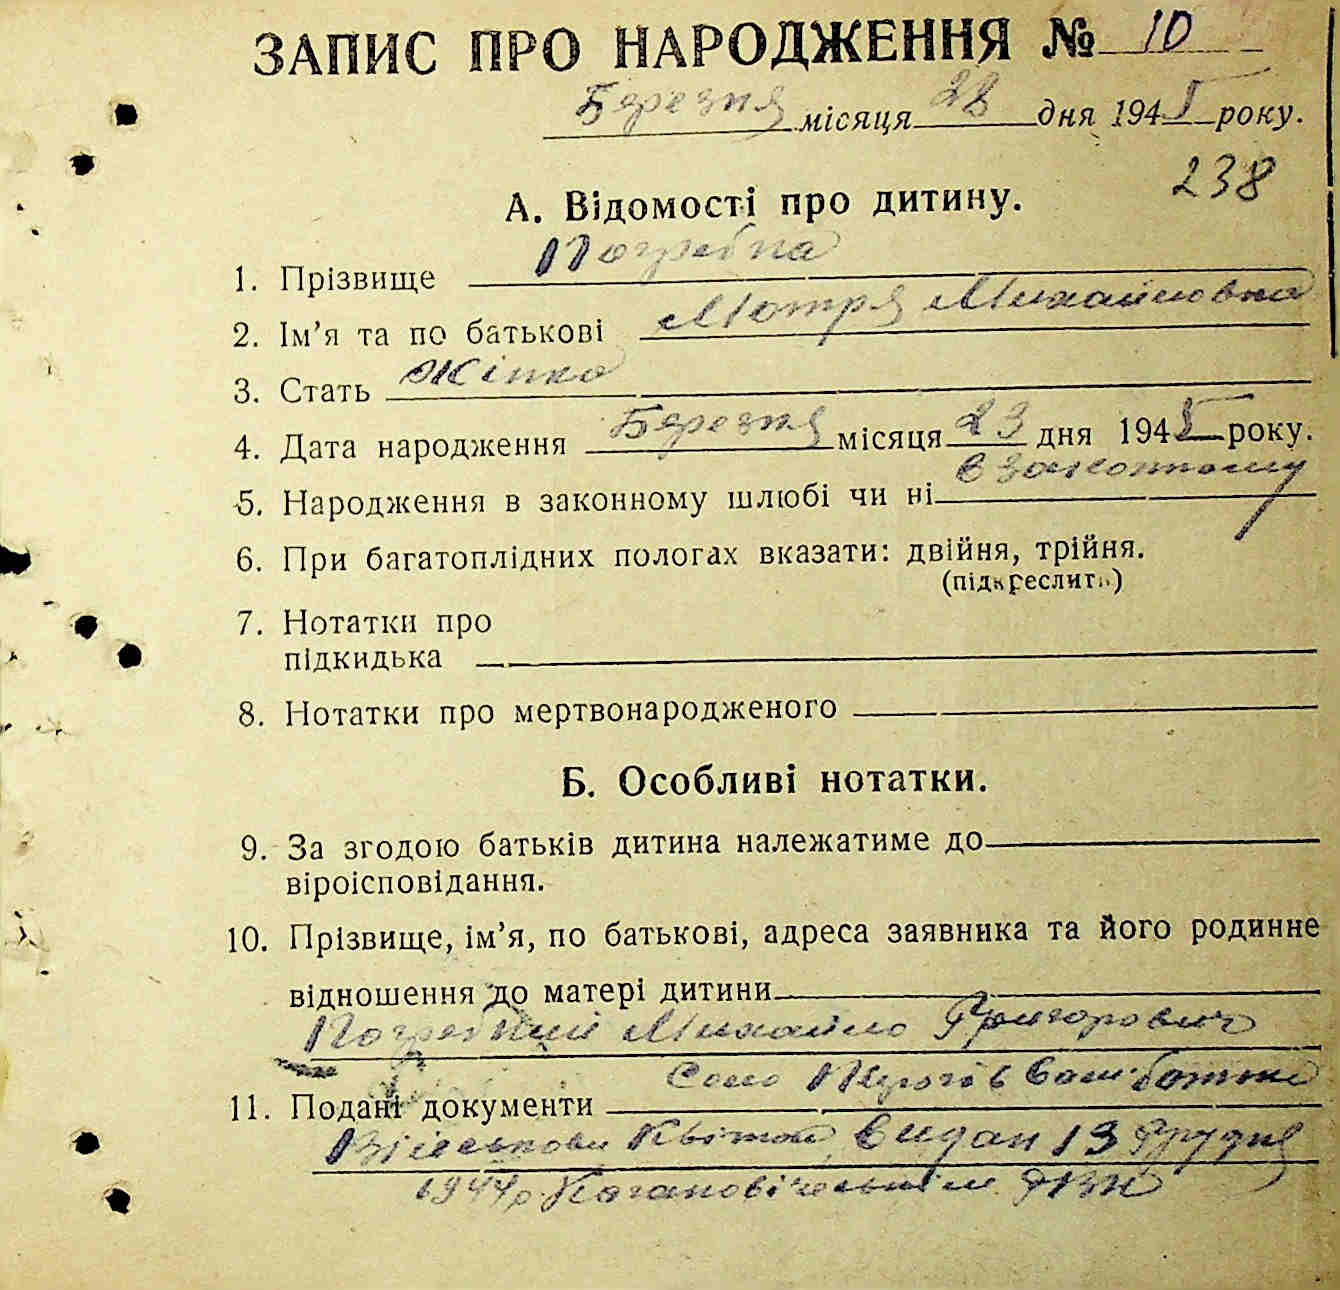 ЗАПИС ПРО НАРОДЖЕННЯ № 10
Березня місяця 28 дня 1945 року.
238
А. Відомості про дитину.
1. Прізвище Погребна
2. Ім'я та по батькові Мотря Михайловна
3. Стать Жінка
4. Дата народження Березня місяця 23 дня 1945 року.
5. Народження в законному шлюбі чи ні в законному
6. При багатоплідних пологах вказати: двійня, трійня.
(підкреслить)
7. Нотатки про
підкидька
8. Нотатки про мертвонародженого
Б. Особливі нотатки.
9. За згодою батьків дитина належатиме до
віроісповідання.
10. Прізвище, ім'я, по батькові, адреса заявника та його родинне
відношення до матері дитини
Погребний Михайло Григорович
Село Пирогів
11. Подані документи
Військови Квіток Видан 13 Грудня
1944р. Кагановическим РВК